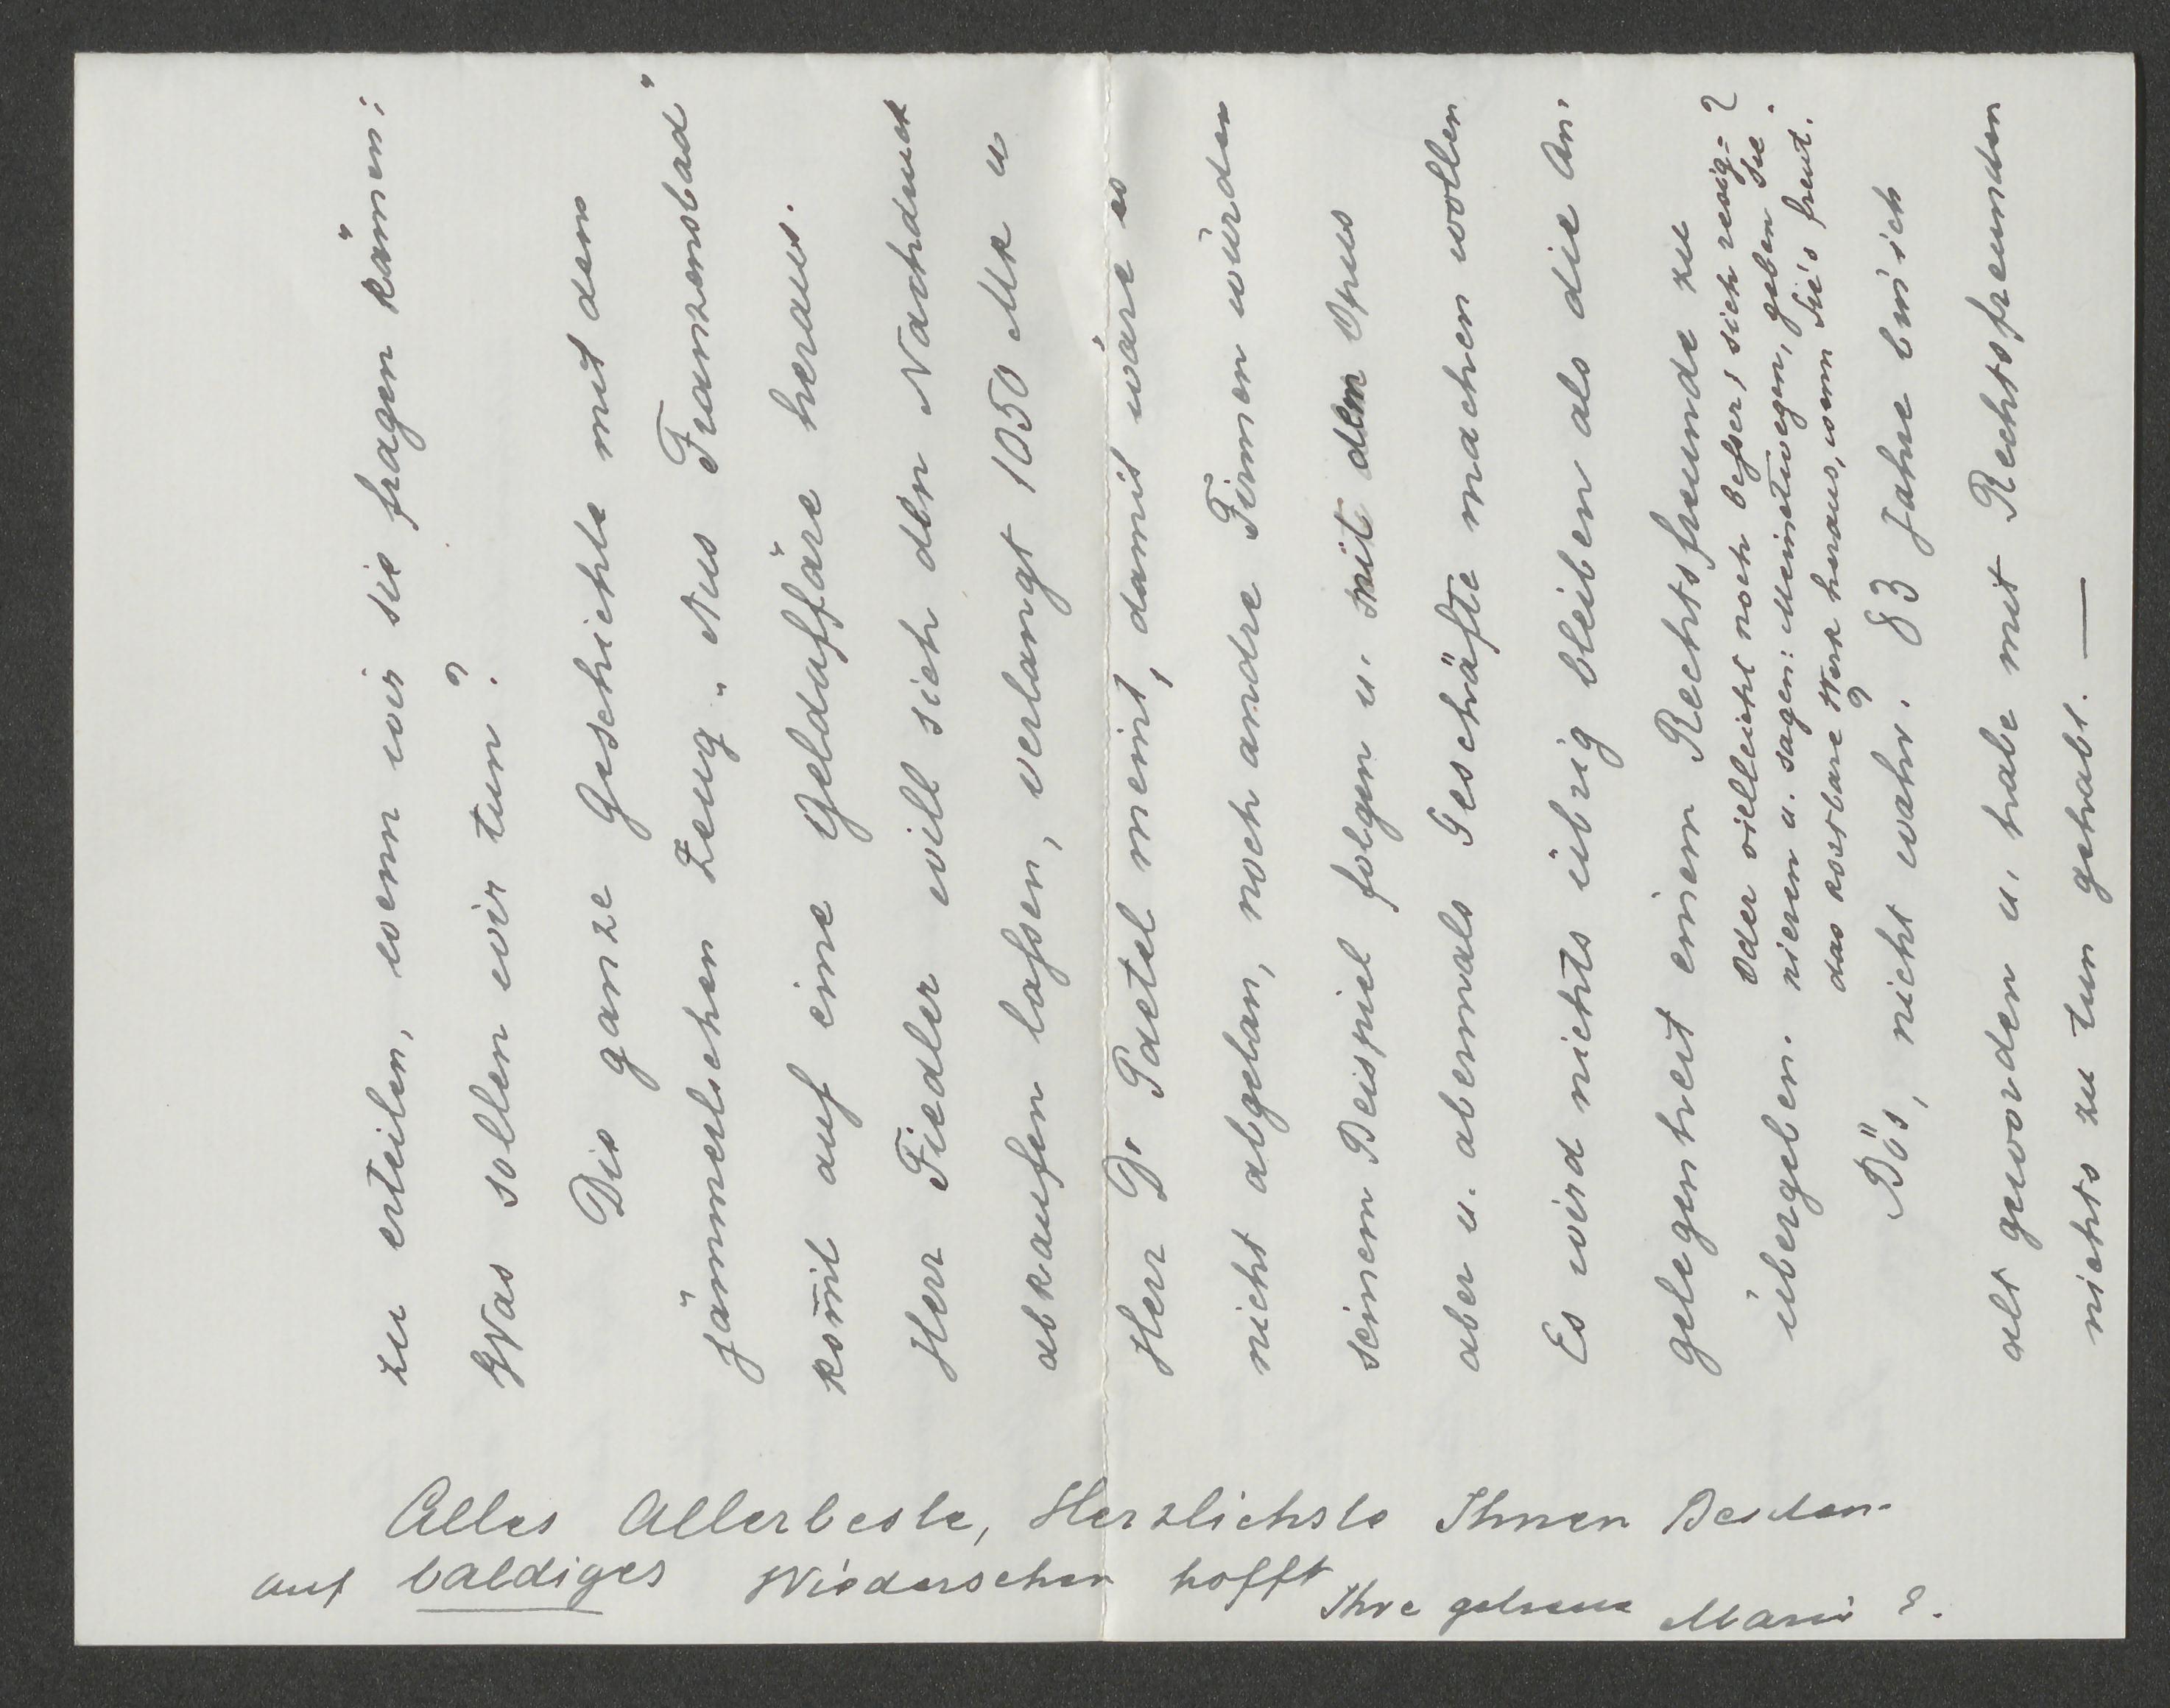 zu erteilen, wenn wir sie fragen kämen:
Was sollen wir tun?
Die ganze Geschichte mit dem
jämmerlichen Zeug „Aus Franzensbad"
kom̅t auf eine Geldaffäre heraus.
Herr Fiedler will sich den Nachdruck
abkaufen laſsen, verlangt 1050 Mk u
Herr Dr Paetel meint, damit wäre es
nicht abgetan, noch andre Firmen würden
seinem Beispiel folgen u. mit dem Opus
aber u. abermals Geschäfte machen wollen
Es wird nichts übrig bleiben als die An,
gelegenheit einem Rechtsfreunde zu
übergeben.
Oder vielleicht noch beſser, sich resig=
nieren u. sagen: Meinetwegen, geben Sie
das kostbare Werk heraus, wenn Sie's freut.
?
Bös, nicht wahr? 83 Jahre bin ich
alt geworden u. habe mit Rechtsfreunden
nichts zu tun gehabt. —
Alles Allerbeste, Herzlichste Ihnen Beiden.
auf baldiges Wiedersehen hofft
Ihre getreue Marie E.